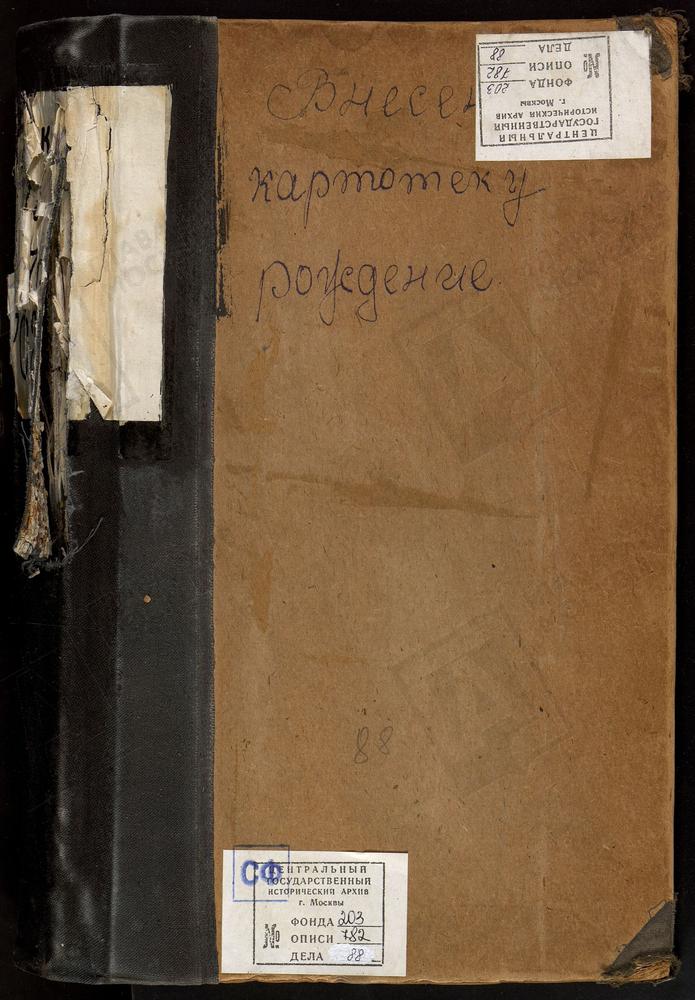 Внесен
картотеку
рождение
ЦЕНТРАЛЬНЫЙ
ГОСУДАРСТВЕННЫЙ
ИСТОРИЧЕСКИЙ АРХИВ
г. Москвы
№
ФОНДА 203
ОПИСИ 782
ДЕЛА 88
88
СФ
ЦЕНТРАЛЬНЫЙ
ГОСУДАРСТВЕННЫЙ
ИСТОРИЧЕСКИЙ АРХИВ
г. Москвы
№
ФОНДА 203
ОПИСИ 782
ДЕЛА 88